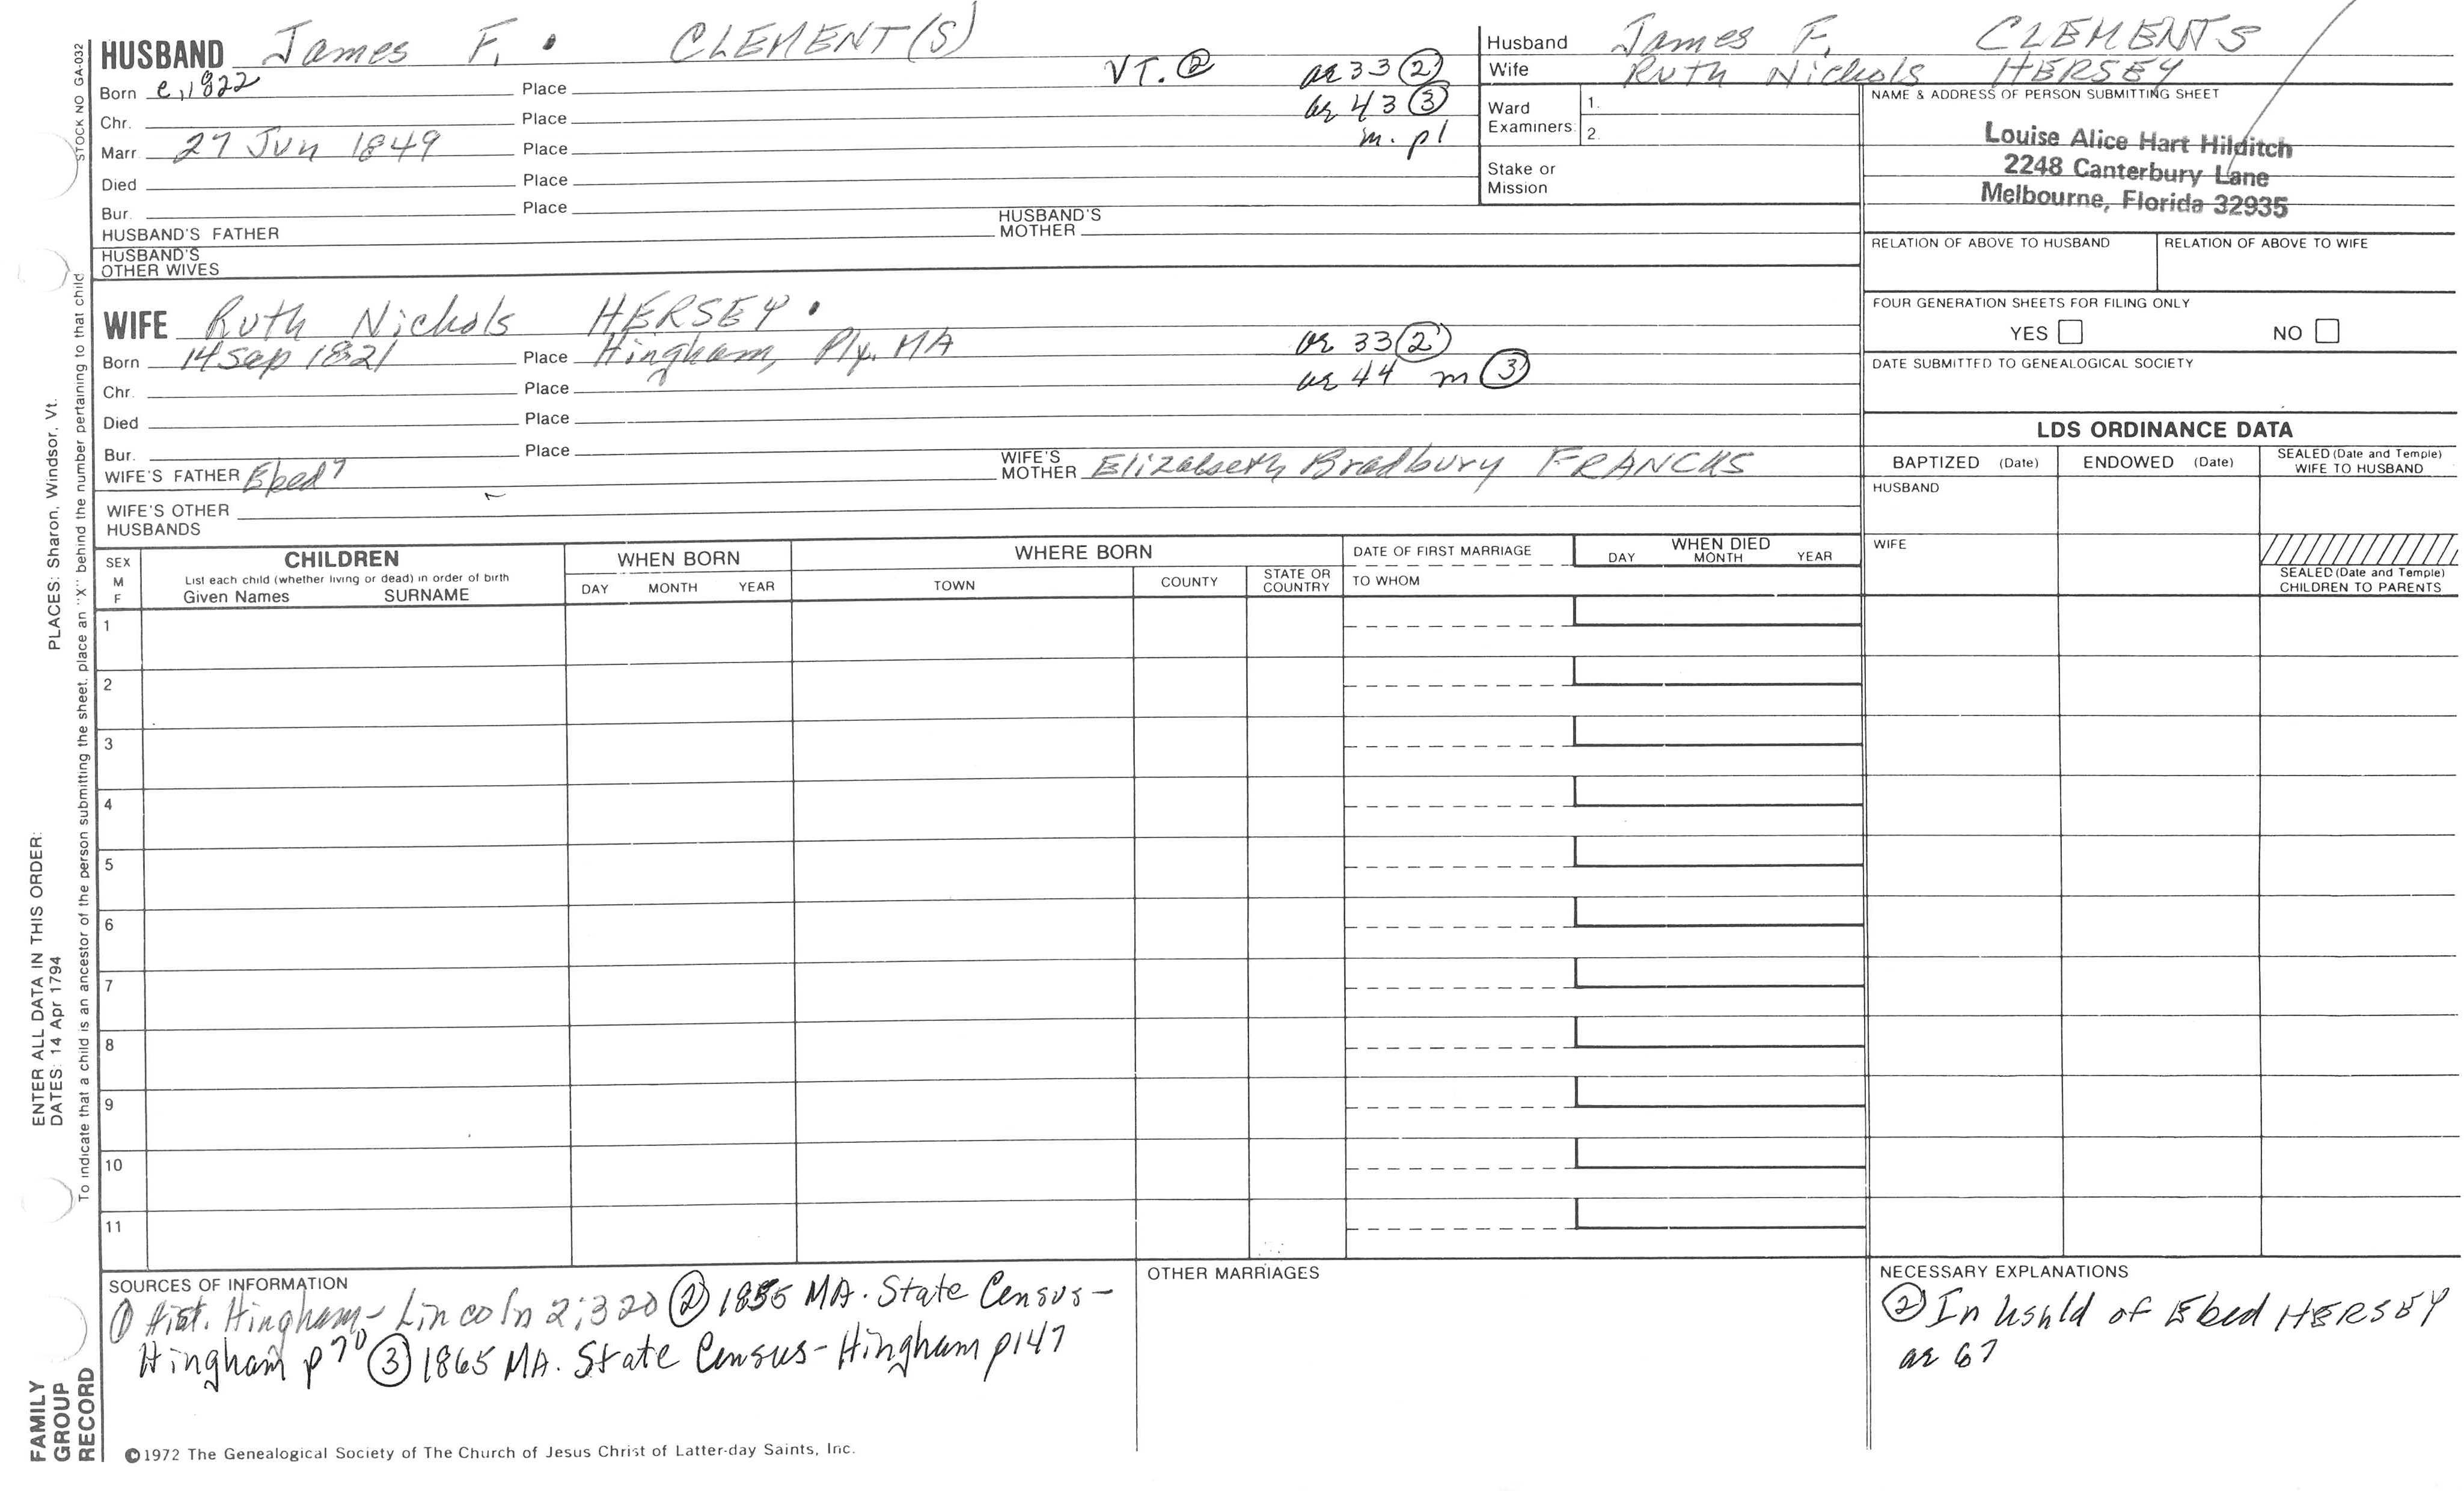 STOCK NO GA-032
HUSBAND James F. CLEMENT(S)
Born c. 1822 Place VT. ② ae 33 ②
Chr. Place ae 43 ③
Marr 27 Jun 1849 Place m. pl
Died Place
Bur. Place
HUSBAND'S FATHER HUSBAND'S MOTHER
HUSBAND'S OTHER WIVES
Husband James F. CLEMENTS
Wife Ruth Nichols HERSEY
Ward Examiners 1.
2.
Stake or Mission
NAME & ADDRESS OF PERSON SUBMITTING SHEET
Louise Alice Hart Hilditch
2248 Canterbury Lane
Melbourne, Florida 32935
RELATION OF ABOVE TO HUSBAND RELATION OF ABOVE TO WIFE
FOUR GENERATION SHEETS FOR FILING ONLY
YES NO
DATE SUBMITTED TO GENEALOGICAL SOCIETY
WIFE Ruth Nichols HERSEY
Born 14 Sep 1821 Place Hingham, Ply. MA ae 33 ②
Chr. Place ae 44 m ③
Died Place
Bur. Place
WIFE'S FATHER Ebed 7 WIFE'S MOTHER Elizabeth Bradbury FRANCKS
WIFE'S OTHER HUSBANDS
LDS ORDINANCE DATA
BAPTIZED (Date) ENDOWED (Date) SEALED (Date and Temple) WIFE TO HUSBAND
HUSBAND
WIFE
SEALED (Date and Temple) CHILDREN TO PARENTS
SEX M F
CHILDREN
List each child (whether living or dead) in order of birth
Given Names SURNAME
WHEN BORN
DAY MONTH YEAR
WHERE BORN
TOWN COUNTY STATE OR COUNTRY
DATE OF FIRST MARRIAGE
TO WHOM
WHEN DIED
DAY MONTH YEAR
1
2
3
4
5
6
7
8
9
10
11
SOURCES OF INFORMATION
① Hist. Hingham - Lincoln 2:320 ② 1855 MA. State Census -
Hingham p 70 ③ 1865 MA. State Census - Hingham p147
OTHER MARRIAGES
NECESSARY EXPLANATIONS
② In hshld of Ebed HERSEY
ae 67
©1972 The Genealogical Society of The Church of Jesus Christ of Latter-day Saints, Inc.
FAMILY GROUP RECORD
ENTER ALL DATA IN THIS ORDER:
DATES: 14 Apr 1794 PLACES: Sharon, Windsor, Vt.
To indicate that a child is an ancestor of the person submitting the sheet, place an "X" behind the number pertaining to that child